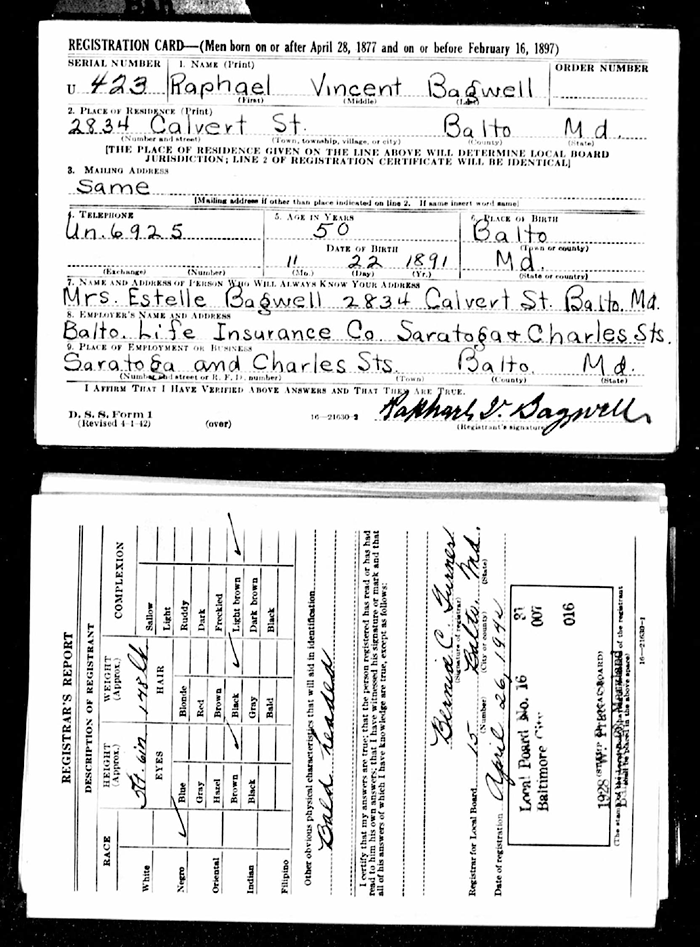 REGISTRATION CARD—(Men born on or after April 28, 1877 and on or before February 16, 1897)
SERIAL NUMBER 1. NAME (Print) ORDER NUMBER
U 423 Raphael Vincent Bagwell
(First) (Middle) (Last)
2. PLACE OF RESIDENCE (Print)
2834 Calvert St. Balto Md.
(Number and street) (Town, township, village, or city) (County) (State)
[THE PLACE OF RESIDENCE GIVEN ON THE LINE ABOVE WILL DETERMINE LOCAL BOARD
JURISDICTION; LINE 2 OF REGISTRATION CERTIFICATE WILL BE IDENTICAL]
3. MAILING ADDRESS
Same
[Mailing address if other than place indicated on line 2. If same insert word same]
4. TELEPHONE 5. AGE IN YEARS 6. PLACE OF BIRTH
Un. 6925 50 Balto
DATE OF BIRTH (Town or county)
11 22 1891 Md.
(Exchange) (Number) (Mo.) (Day) (Yr.) (State or country)
7. NAME AND ADDRESS OF PERSON WHO WILL ALWAYS KNOW YOUR ADDRESS
Mrs. Estelle Bagwell 2834 Calvert St. Balto. Md.
8. EMPLOYER'S NAME AND ADDRESS
Balto. Life Insurance Co. Saratoga + Charles Sts.
9. PLACE OF EMPLOYMENT OR BUSINESS
Saratoga and Charles Sts. Balto. Md.
(Number and street or R. F. D. number) (Town) (County) (State)
I AFFIRM THAT I HAVE VERIFIED ABOVE ANSWERS AND THAT THEY ARE TRUE.
D. S. S. Form 1
(Revised 4-1-42) (over) 16—21630-2 Raphael V. Bagwell
(Registrant's signature)
REGISTRAR'S REPORT
DESCRIPTION OF REGISTRANT
RACE HEIGHT (Approx.) WEIGHT (Approx.) COMPLEXION
5ft. 6in 148 lb
White EYES HAIR Sallow
Light
Negro Blue Blonde Ruddy
Gray Red Dark
Oriental Hazel Brown Freckled
Brown Black Light brown
Indian Black Gray Dark brown
Bald Black
Filipino
Other obvious physical characteristics that will aid in identification
Bald headed
I certify that my answers are true; that the person registered has read or has had
read to him his own answers; that I have witnessed his signature or mark and that
all of his answers of which I have knowledge are true, except as follows:
Bernia C. Turner
(Signature of registrar)
Registrar for Local Board 15 Balto Md.
(Number) (City or county) (State)
Date of registration April 26, 1942
Local Board No. 16
Baltimore City 007
016
1928 W.
(STAMP OF LOCAL BOARD)
(The stamp of the Local Board having jurisdiction of the registrant
shall be placed in the above space)
16—21630-1